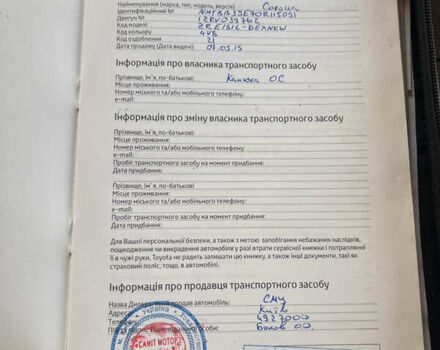 Найменування (марка, тип, модель, версія) Corolla
Ідентифікаційний №
Двигун №
Код моделі
Код кольору 4V8
Код оздоблення 21
Дата продажу (Дата видачі) 07.03.15
Інформація про власника транспортного засобу
Прізвище, ім'я, по-батькові: О.С.
Місце проживання:
Номер міського та/або мобільного телефону:
e-mail:
Інформація про зміну власника транспортного засобу
Прізвище, ім'я, по-батькові:
Місце проживання:
Номер міського та/або мобільного телефону:
e-mail:
Пробіг транспортного засобу на момент придбання:
Дата придбання:
Прізвище, ім'я, по-батькові
Місце проживання:
Номер міського та/або мобільного телефону:
e-mail:
Пробіг транспортного засобу на момент придбання:
Дата придбання:
Для Вашої персональної безпеки, а також з метою запобігання небажаних наслідків,
пошкодження чи викрадення автомобіля у разі втрати сервісної книжки і потраплянні
її в чужі руки, Toyota не радить залишати цю книжку, а також інші документи, такі як
страховий поліс, тощо, в автомобілі.
Інформація про продавця транспортного засобу
Назва Дилера, який продав автомобіль: СМУ
Адреса Київ
Телефон 4927000
відповідальної особи: О.О.
Україна
"САМІТ МОТОРЗ